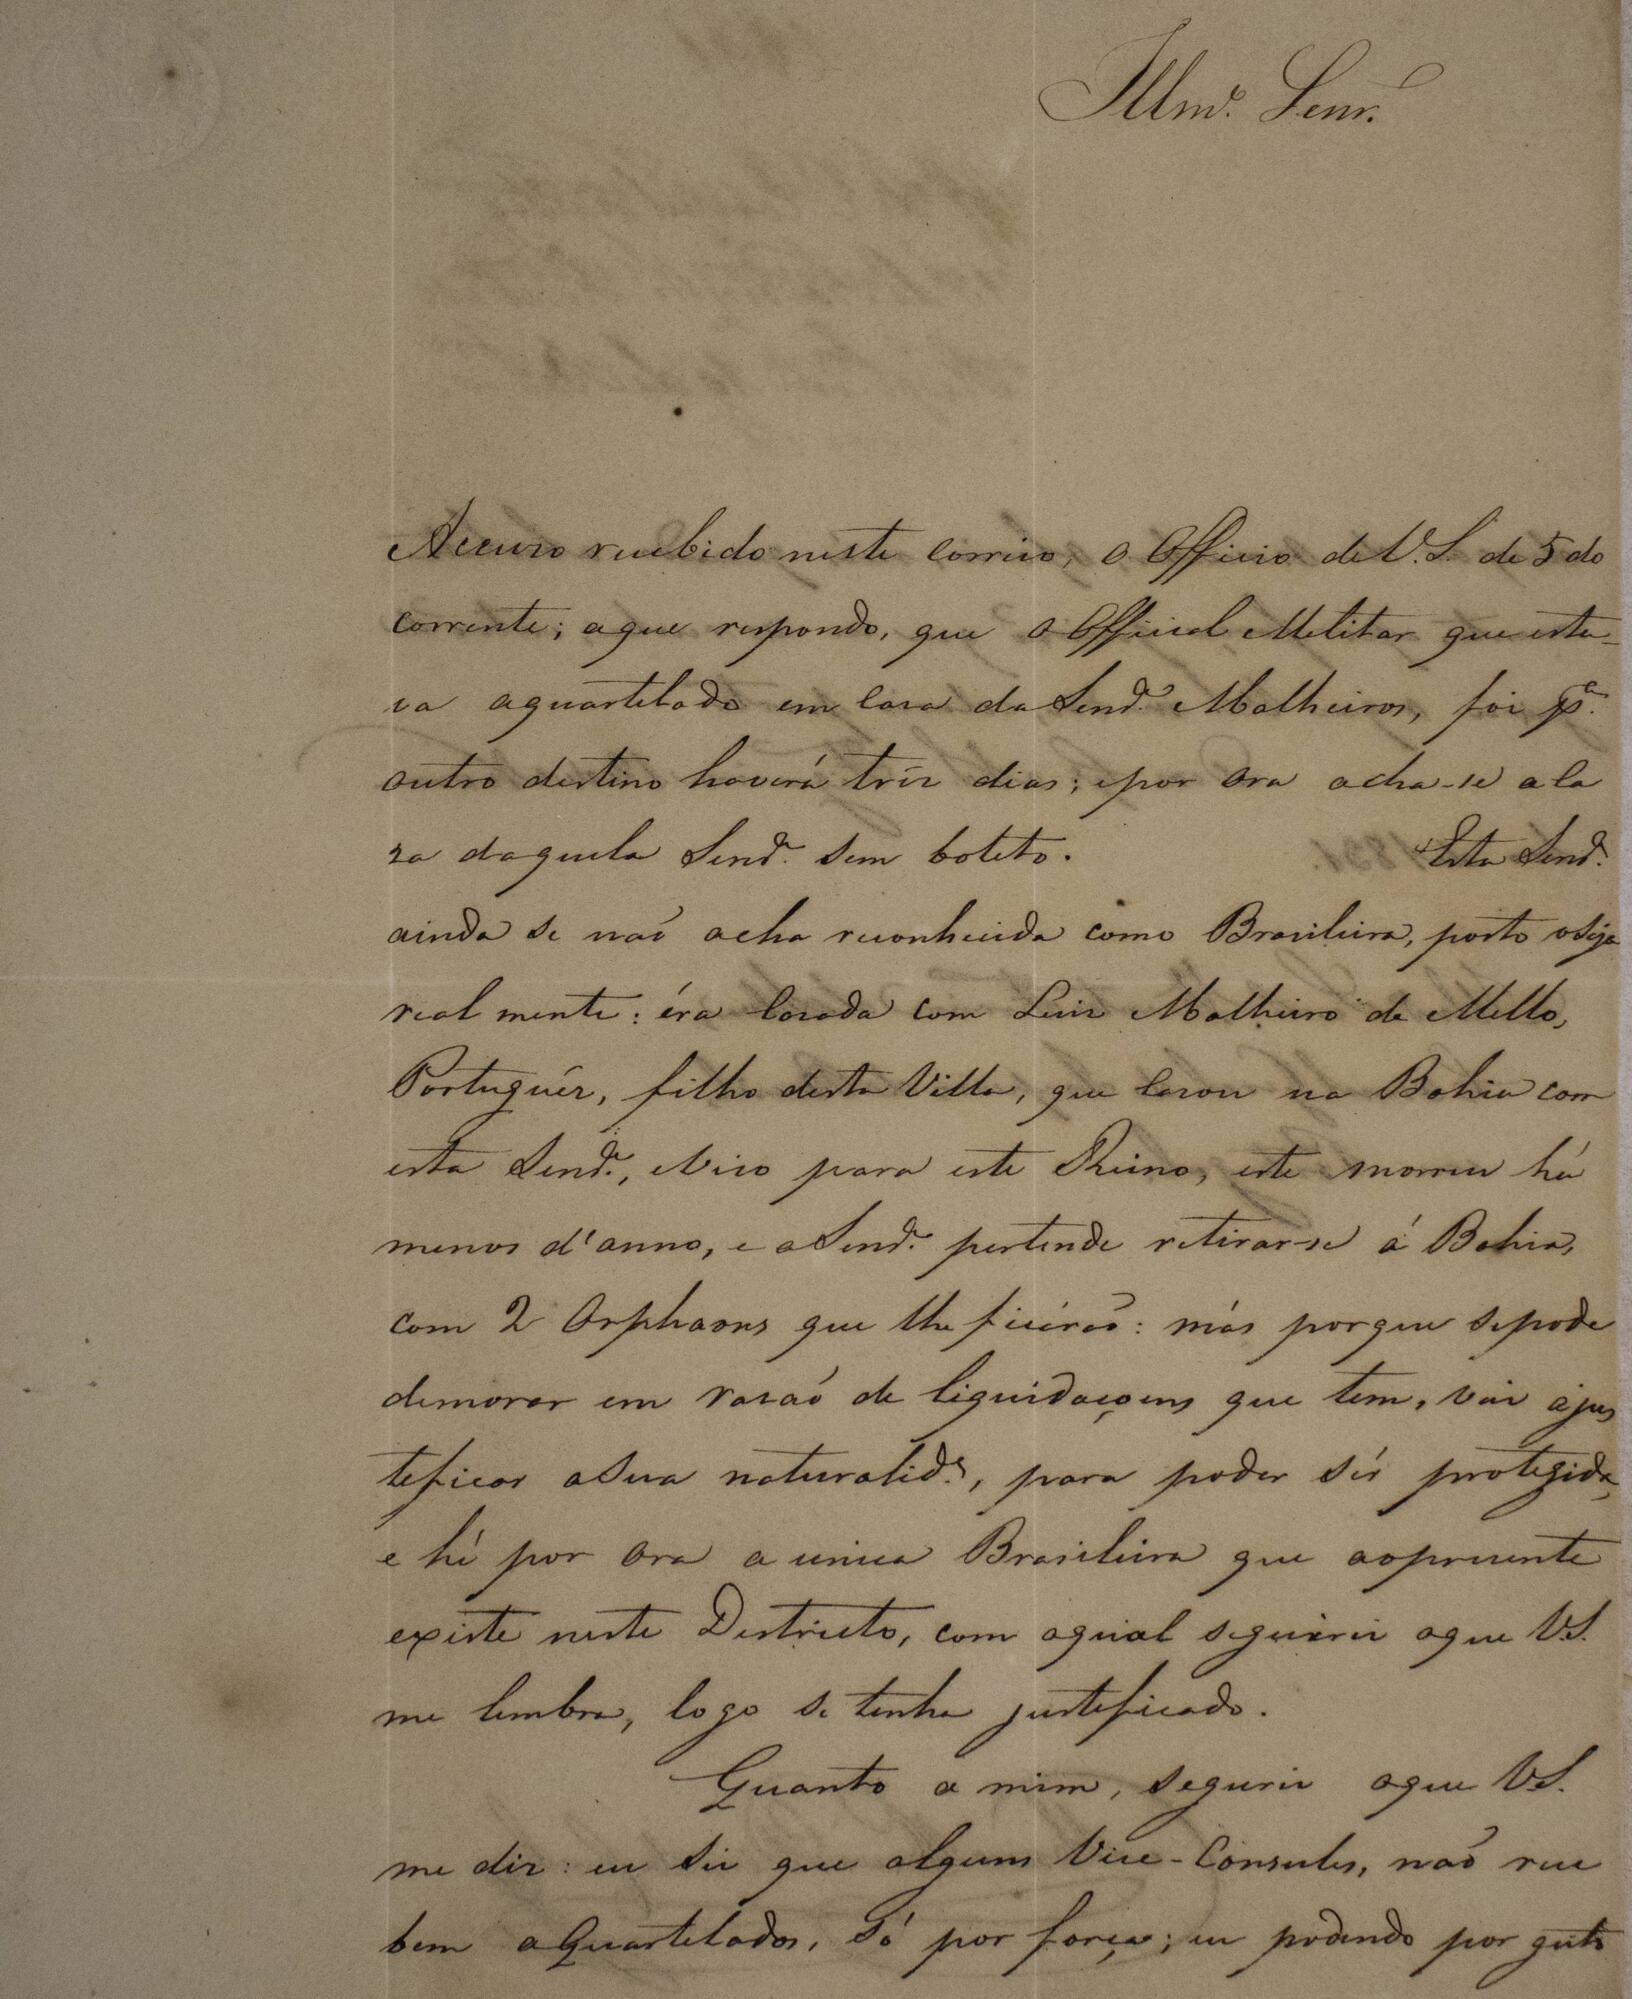 Illmo. Senr.
Accuso recebido neste Correio, o Officio de V.S. de 5 do
corrente; aque respondo, que o Official Melitar que esta-
va aquartelado em Casa da Senrª. Malheiros, foi pª.
outro destino haverá tres dias; epor Ora acha-se a Ca
za daquela Senrª. Sem boleto. Esta Senrª.
ainda se naõ acha reconhecida como Brasileira, posto oSeja
real mente: éra Casada com Luiz Malheiro de Mello,
Portuguêz, filho desta Villa, que Casou na Bahia com
esta Senrª., eVeio para este Reino, este morreu há
menos d'anno, e aSenrª. pertende retirar-se á Bahia,
com 2 Orphaons que lhe ficáraõ: más porque sepode
demorar em rasaõ de liquidaçoens que tem, vai ajus
teficar aSua naturalidᵉ., para poder Sêr protegida,
e hé por Ora a unica Brasileira que aopresente
existe neste Destricto, com aqual seguirei oque V.S.
me lembra, logo Se tenha justeficado.
Quanto a mim, seguirei oque V.S.
me diz: eu Sei que alguns Vice-Consules, naõ rece
bem aQuartelados, Só por força; eu podendo por geito